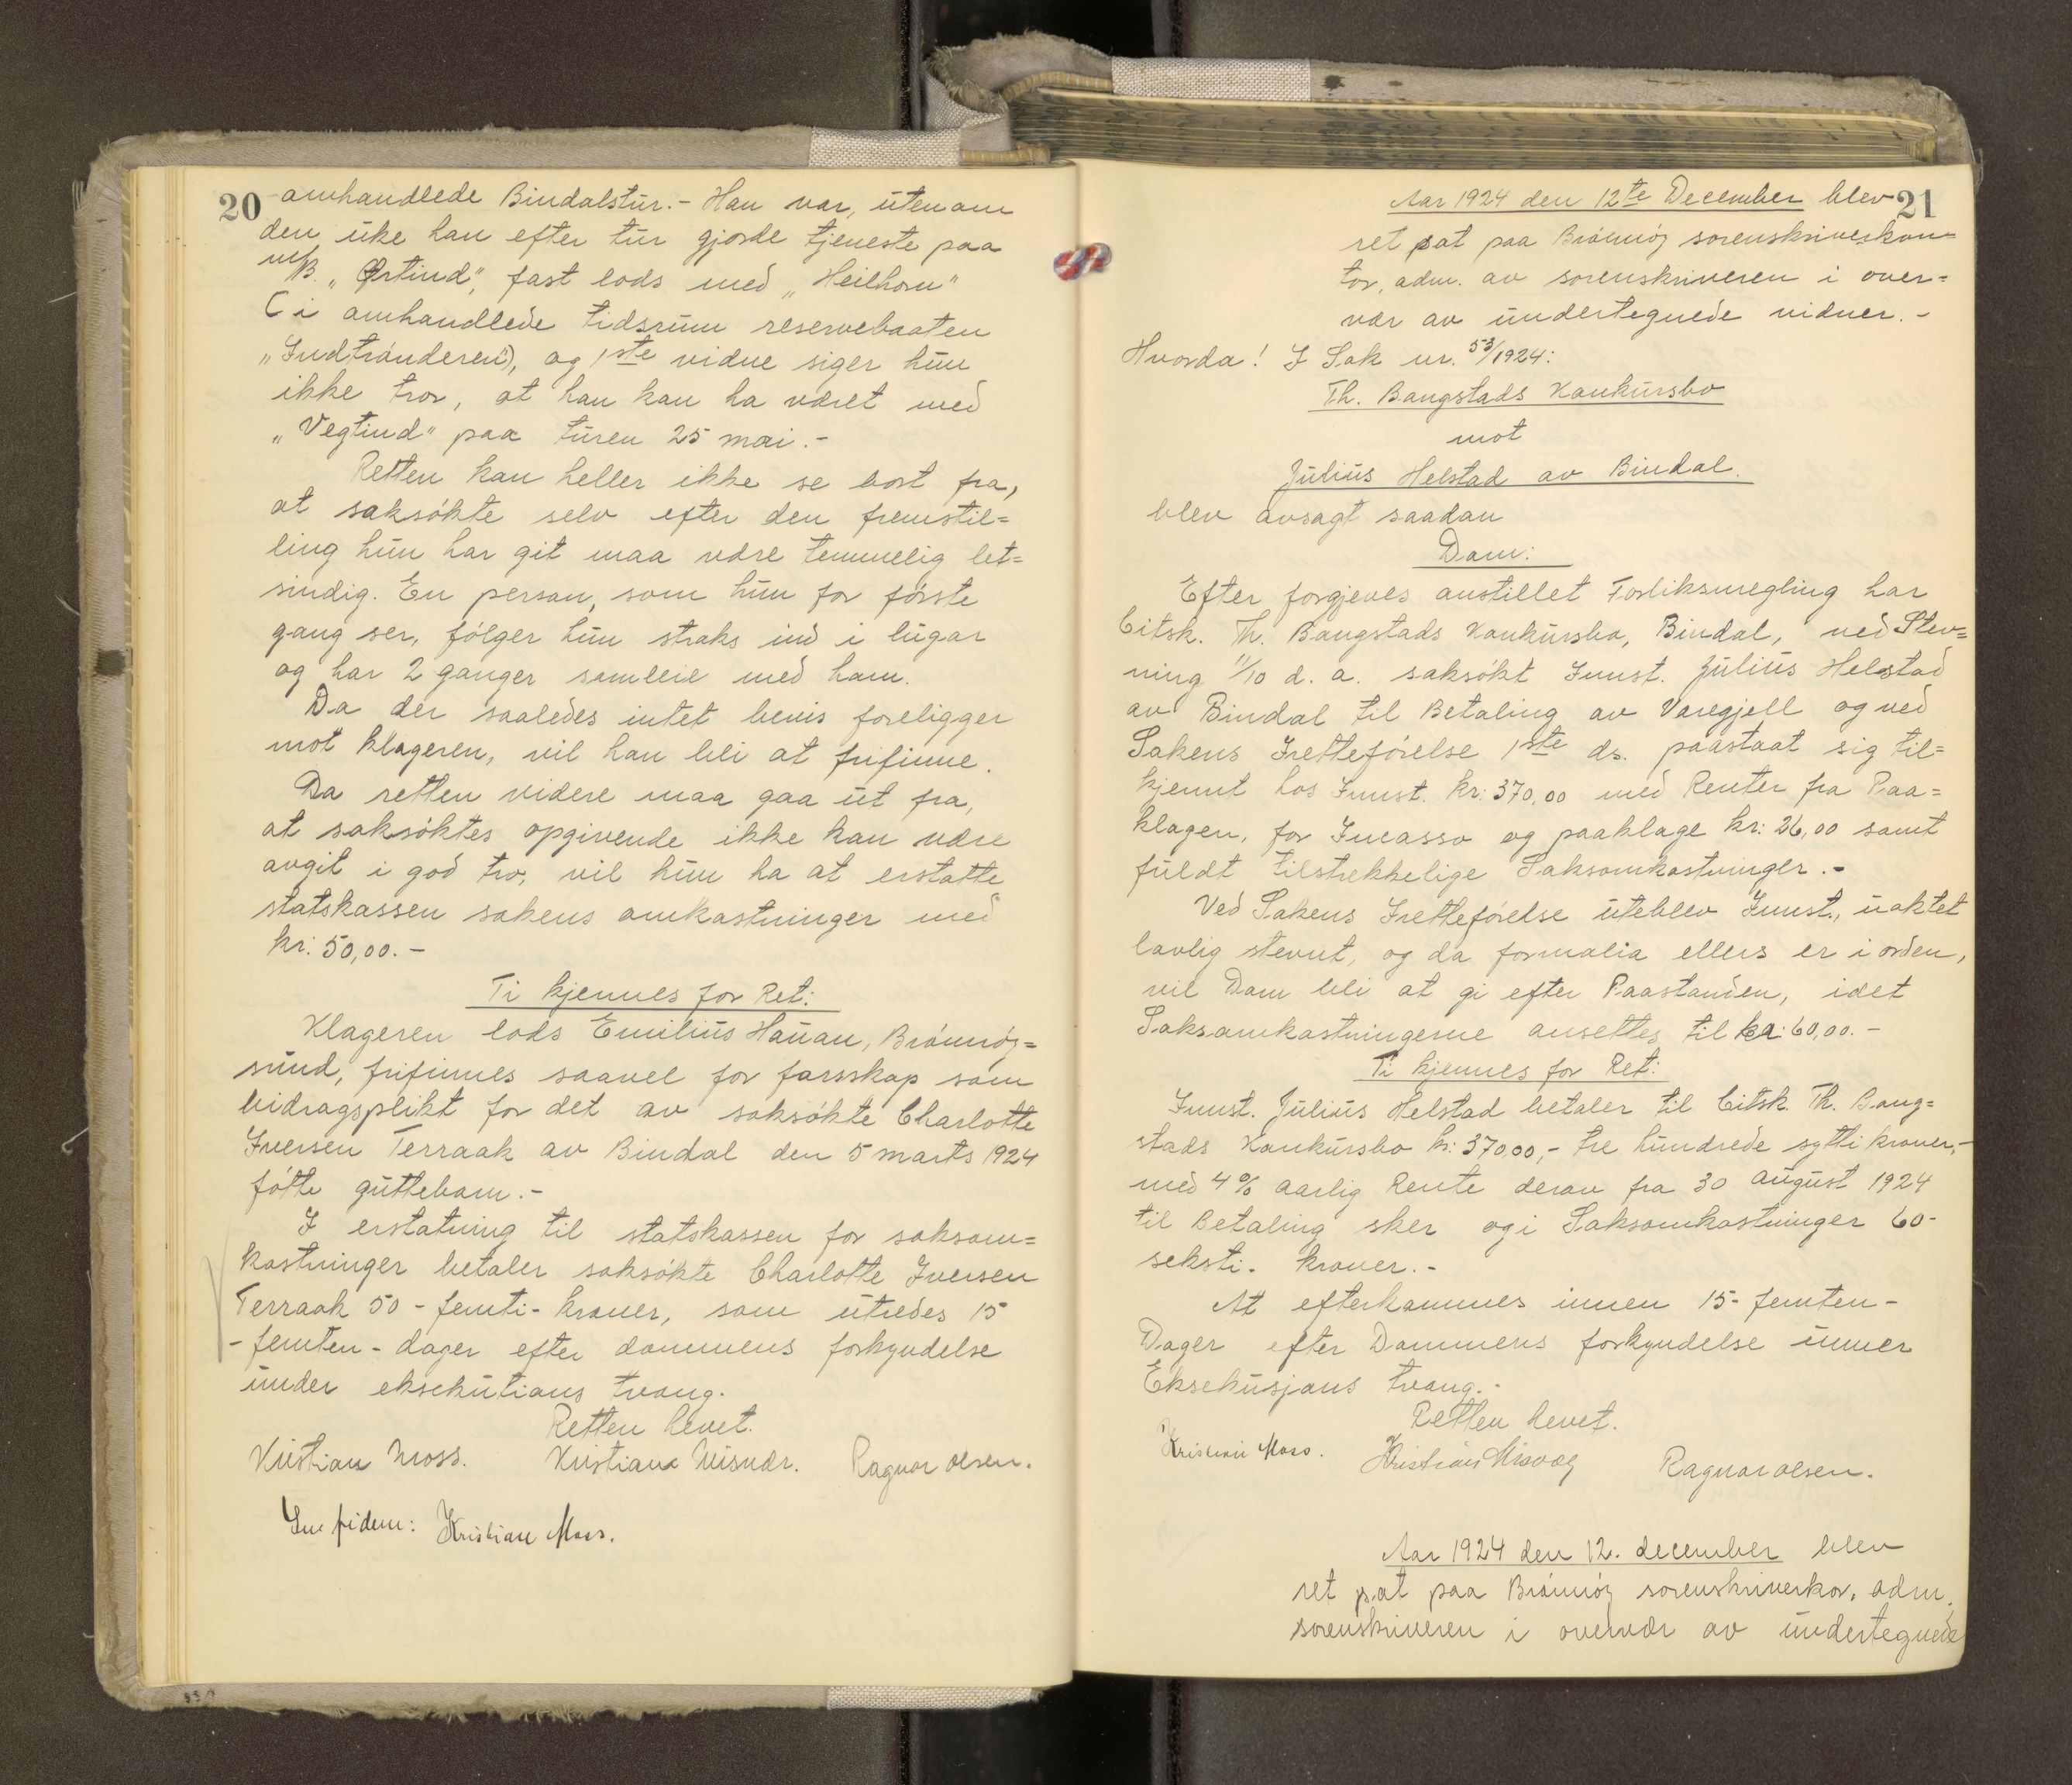 20 omhandlede Bindalstur. - Han var, utenom
den uke han efter tur gjorde tjeneste paa
m/B. „Ørtind", fast lods med „Heilhorn"
( i omhandlede tidsrum reservebaaten
„Indtrønderen"), og 1ste vidne siger hun
ikke tror, at han kan ha været med
„Vegtind" paa turen 25 mai. -
Retten kan heller ikke se bort fra,
at saksøkte selv efter den fremstil=
ling hun har git maa være temmelig let=
sindig. En person, som hun for første
gang ser, følger hun straks ind i lugar
og har 2 ganger samleie med ham.
Da der saaledes intet bevis foreligger
mot klageren, vil han bli at frifinne.
Da retten videre maa gaa ut fra,
at saksøktes opgivende ikke kan være
avgit i god tro, vil hun ha at erstatte
statskassen sakens omkostninger med
kr: 50,00. -
Ti kjennes for Ret:
Klageren lods Emilius Hauan, Brønnøy=
sund, frifinnes saavel for farsskap som
bidragsplikt for det av saksøkte Charlotte
Iversen Terraak av Bindal den 5 marts 1924
føtte guttebarn. -
I erstatning til statskassen for saksom=
kostninger betaler saksøkte Charlotte Iversen
Terraak 50 - femti - kroner, som utredes 15
- femten - dager efter dommens forkyndelse
under eksekutions tvang.
Retten hevet.
Kristian Moss. Kristian Misvær. Ragnar Olsen.
In fidem: Kristian Moss.
Aar 1924 den 12te December blev 21
ret sat paa Brønnøy sorenskriverkon=
tor, adm. av sorenskriveren i over=
vær av undertegnede vidner. -
Hvorda! I Sak nr. 53/1924:
Th. Bangstads Konkursbo
mot
Julius Helstad av Bindal.
blev avsagt saadan
Dom:
Efter forgjeves anstillet Forliksmegling har
Citsk. Th. Bangstads Konkursbo, Bindal, ved Stev=
ning 11/10 d. a. saksøkt Innst. Julius Helstad
av Bindal til Betaling av Varegjell og ved
Sakens Iretteførelse 1ste ds. paastaat sig til=
kjennt hos Innst. kr: 370,00 med Renter fra Paa=
klagen, for Incasso og paaklage kr: 26,00 samt
fuldt tilstrekkelige Saksomkostninger. -
Ved Sakens Iretteførelse uteblev Innst., uaktet
lovlig stevnt, og da formalia ellers er i orden,
vil Dom bli at gi efter Paastanden, idet
Saksomkostningerne ansettes til kr: 60,00. -
Ti kjennes for Ret:
Innst. Julius Helstad betaler til Citsk. Th. Bang=
stads Konkursbo kr: 370,00, - tre hundrede sytti kroner, -
med 4 % aarlig Rente derav fra 30 august 1924
til Betaling sker og i Saksomkostninger 60 -
seksti - kroner. -
At efterkommes innen 15 - femten -
Dager efter Dommens forkyndelse unner
Eksekusjons tvang. -
Retten hevet.
Kristian Moss. Kristian Misvær Ragnar Olsen.
Aar 1924 den 12. december blev
ret sat paa Brønnøy sorenskriverkor. adm.
sorenskriveren i overvær av undertegnede